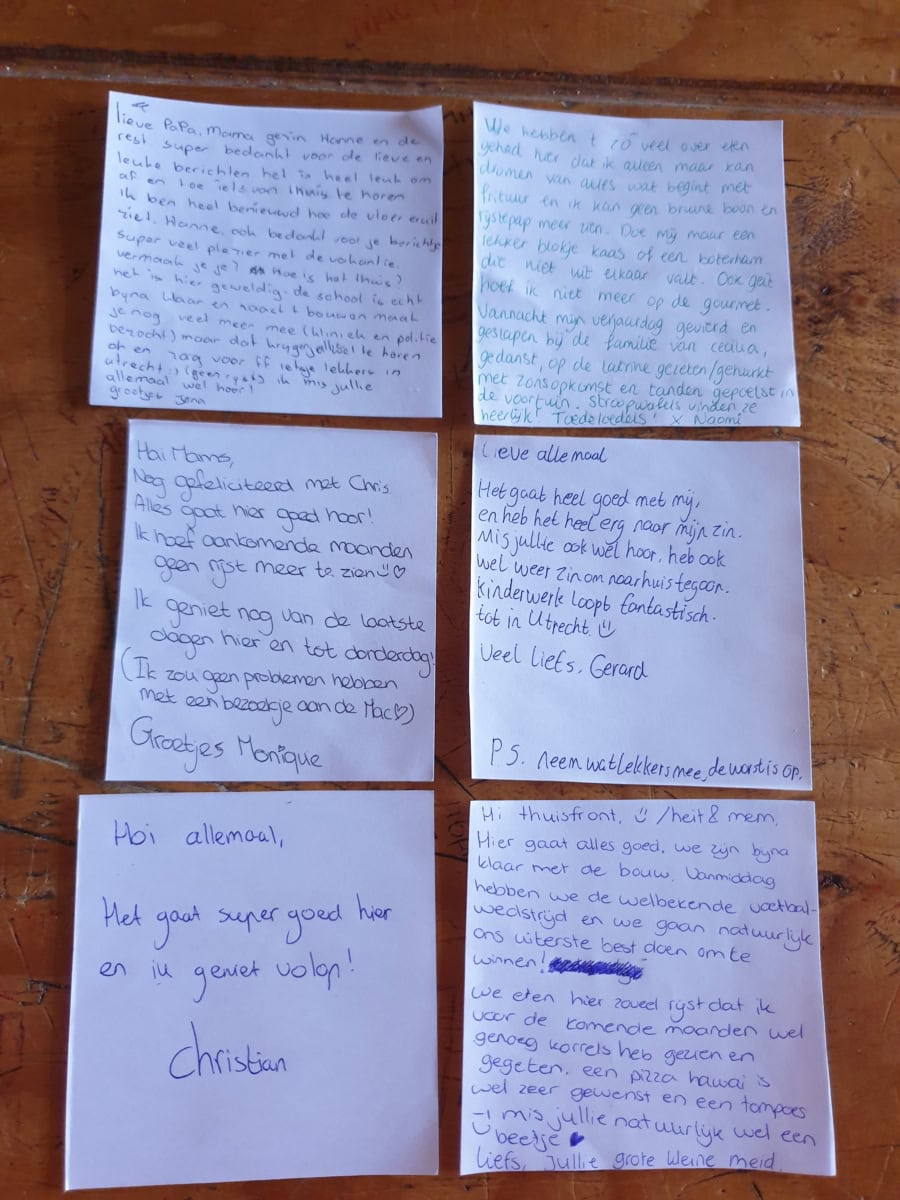 lieve Papa, Mama gezin Hanne en de
rest super bedankt voor de lieve en
leuke berichten het is heel leuk om
af en toe iets van thuis te horen
ik ben heel benieuwd hoe de vloer eruit
ziet. Hanne, ook bedankt voor je berichtje
super veel plezier met de vakantie.
vermaak je je? Hoe is het thuis?
het is hier geweldig. de school is echt
byna klaar en naast t bouwen maak
je nog veel meer mee (kliniek en politie
bezocht) maar dat krygen jullie te horen
oh en zorg voor ff ietsje lekkers in
utrecht :) (geen ryst) ik mis jullie
allemaal wel hoor!
groetjes Jena
We hebben t zó veel over eten
gehad hier dat ik alleen maar kan
dromen van alles wat begint met
frituur en ik kan geen bruine boon en
rijstepap meer zien. Doe mij maar een
lekker blokje kaas of een boterham
die niet uit elkaar valt. Ook geit
hoef ik niet meer op de gourmet.
Vannacht mijn verjaardag gevierd en
geslapen bij de familie van cecilia,
gedanst, op de latrine gezeten/gehurkt
met zonsopkomst en tanden gepoetst in
de voortuin. Stroopwafels vinden ze
heerlijk! Toedeloedels! x Naomi
Hai Mams,
Nog gefeliciteerd met Chris
Alles gaat hier goed hoor!
Ik hoef aankomende maanden
geen rijst meer te zien☺♡
Ik geniet nog van de laatste
dagen hier en tot donderdag!
(Ik zou geen problemen hebben
met een bezoekje aan de Mac♡)
Groetjes Monique
Lieve allemaal
Het gaat heel goed met mij,
en heb het heel erg naar mijn zin.
Mis jullie ook wel hoor, heb ook
wel weer zin om naar huis te gaan.
Kinderwerk loopt fantastisch.
tot in Utrecht ☺
Veel liefs, Gerard
PS. neem wat lekkers mee, de worst is op.
Hoi allemaal,
Het gaat super goed hier
en ik geniet volop!
Christian
Hi thuisfront, ☺ /heit & mem,
Hier gaat alles goed, we zijn byna
klaar met de bouw. Vanmiddag
hebben we de welbekende voetbal-
wedstrijd en we gaan natuurlijk
ons uiterste best doen om te
winnen!
We eten hier zoveel rijst dat ik
voor de komende maanden wel
genoeg korrels heb gezien en
gegeten. een pizza hawai is
wel zeer gewenst en een tompoes
☺ mis jullie natuurlijk wel een
beetje ♥
liefs, jullie grote kleine meid